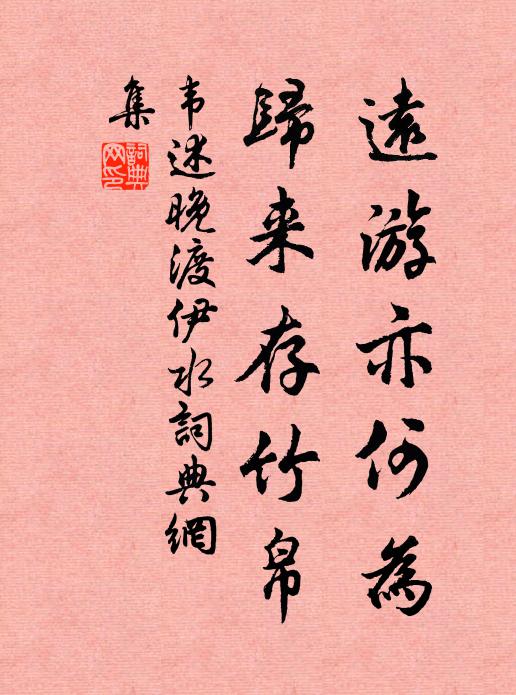 遠游亦何為
歸来存竹帛
韦述晚渡伊水詞典網
集
詞典
网印